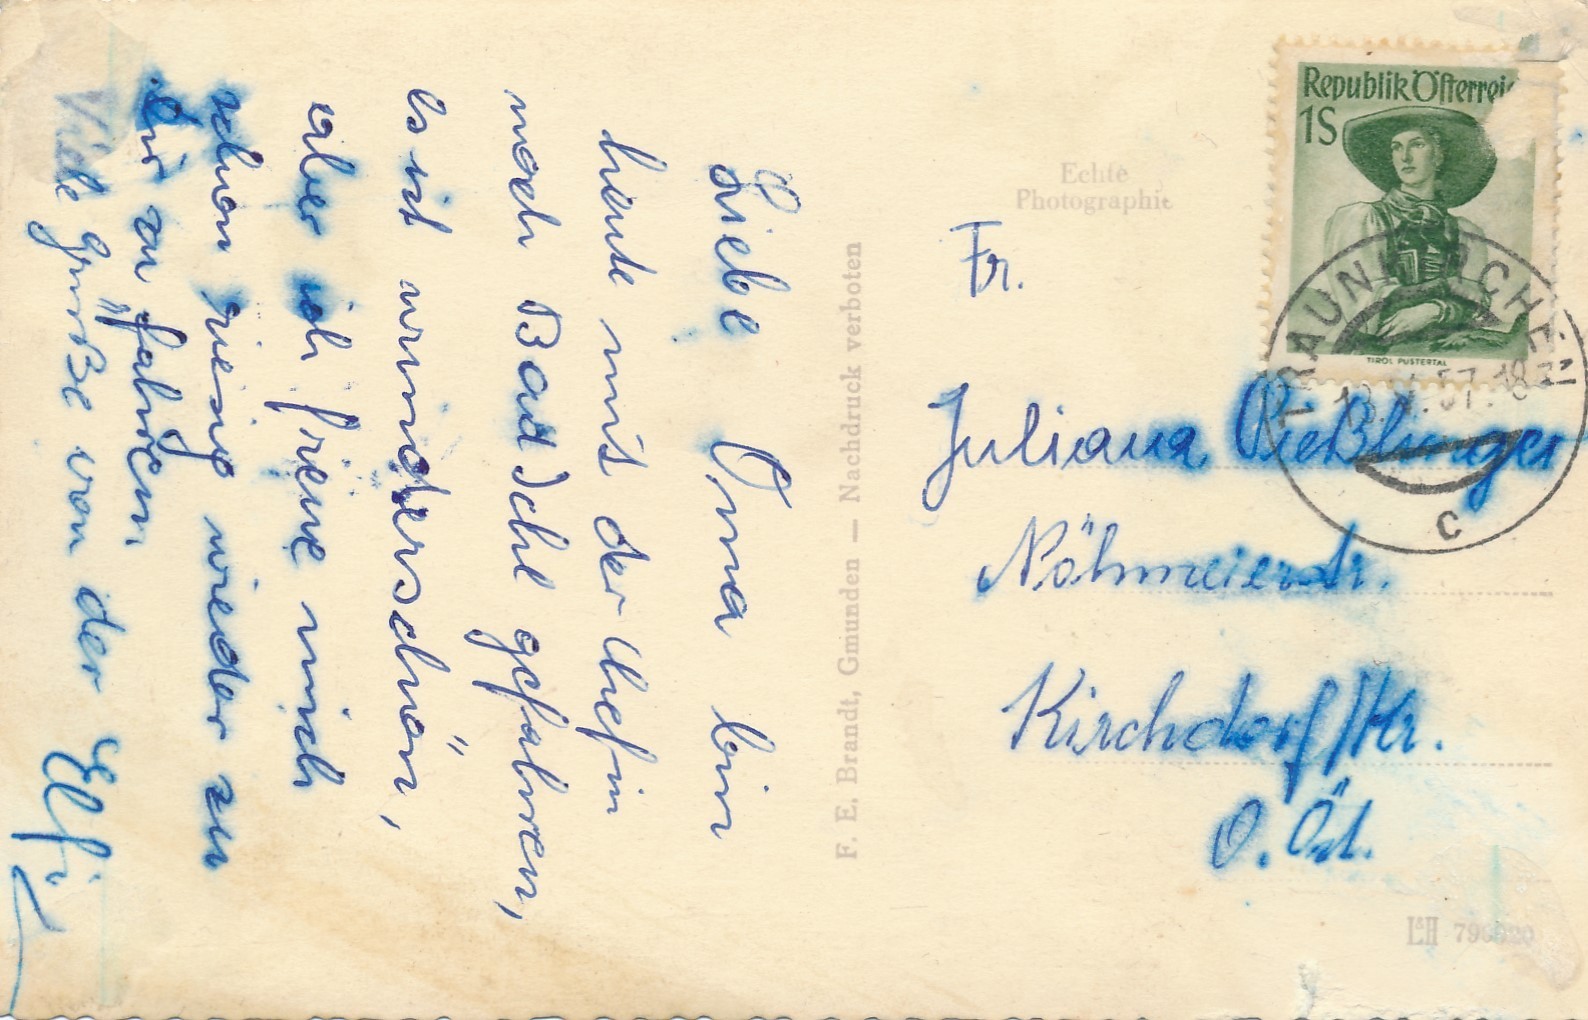 Liebe Oma bin
heute mit der Chefin
nach Bad Ischl gefahren,
es ist wunderschön,
aber ich freue mich
schon riesig wieder zu
Dir zu fahren
Viele Grüße von der Elfi
F. E. Brandt, Gmunden — Nachdruck verboten
Echte
Photographie
Republik Österrei
1S
TIROL PUSTERTAL
57.18
C
Fr.
Juliana
Kirchdorf/Kr.
O. Öst.
L&H